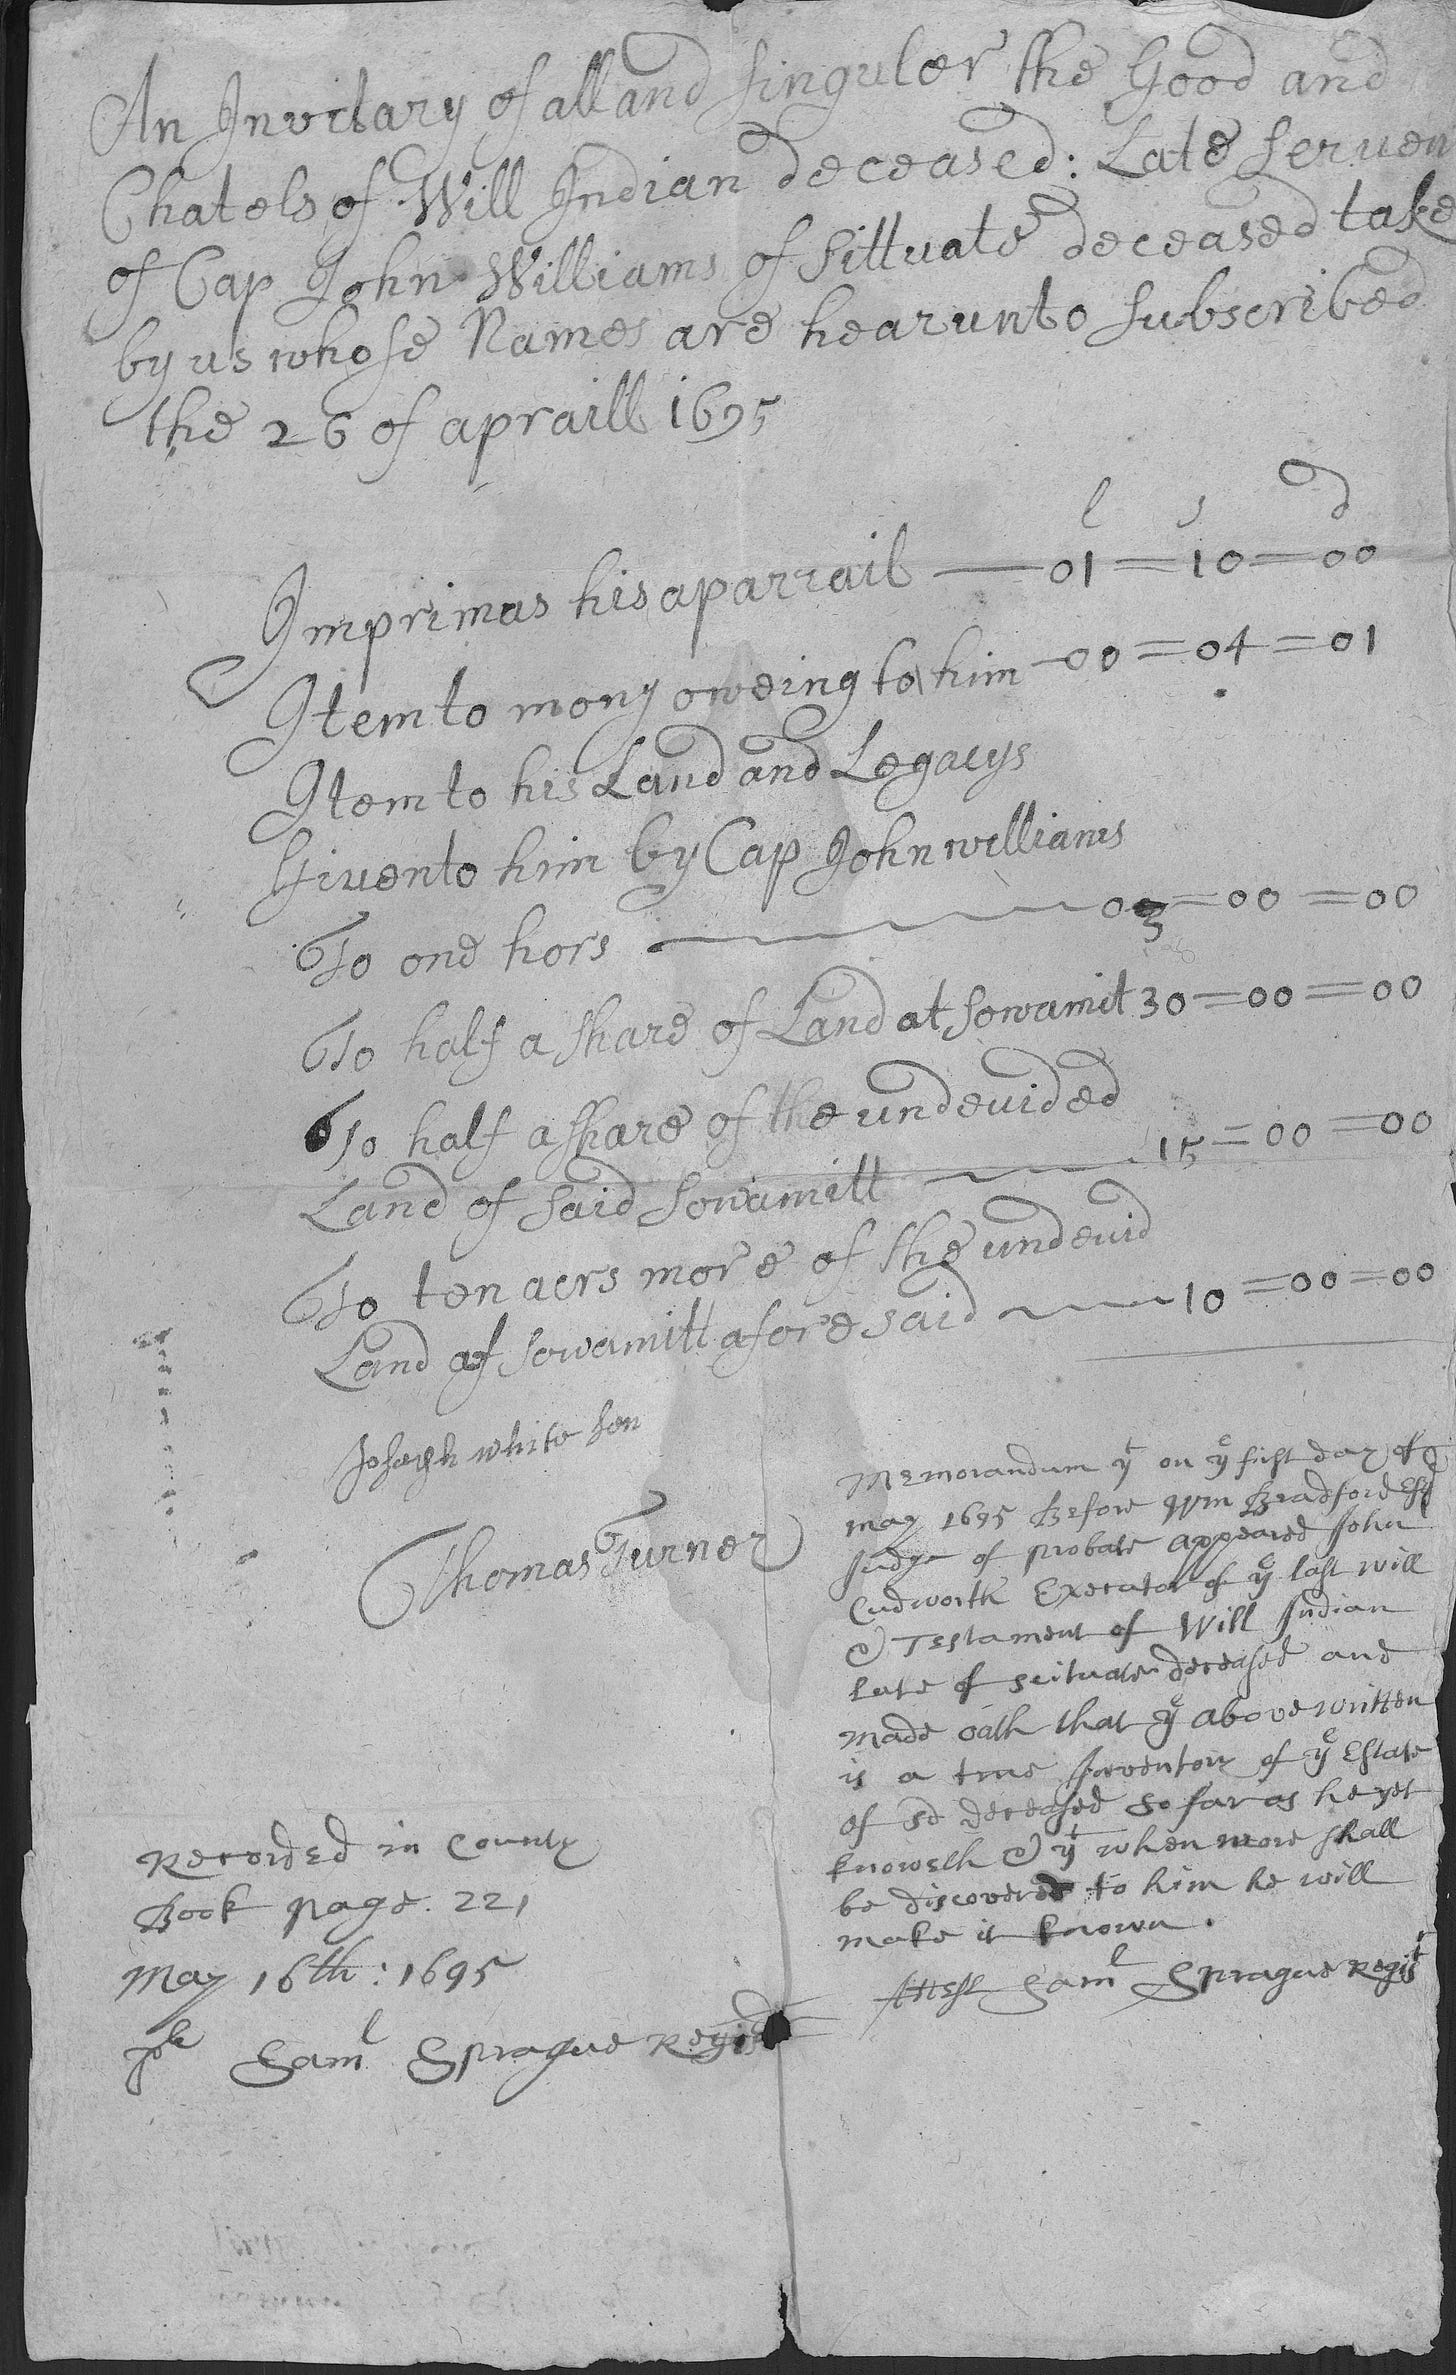 An Invitary of all and singuler the Good and
Chatels of Will Indian deceased: Late Serven
of Cap John Williams of Sittuate deceased take
by us whose Names are hearunto subscribed
the 26 of apraill 1695
l s d
Imprimas his aparrail — 01 = 10 = 00
Item to mony oweing to him — 00 = 04 = 01
Item to his Land and Legacys
Givento him by Cap John williams
To one hors — 03 = 00 = 00
To half a share of Land at Sowamit 30 = 00 = 00
To half a share of the undevided
Land of said Sowamitt — 15 = 00 = 00
To ten acrs more of the undevid
Land at Sowamitt afore said — 10 = 00 = 00
Joseph white sen
Thomas Turner
Memorandum yt on ye first day of
may 1695 Before Wm Bradford Esq
Judge of probate appeared John
Cudworth Executor of ye last will
& Testament of Will Indian
late of Scituate deceased and
made oath that ye above written
is a true Inventory of ye Estate
of sd deceased so far as he yet
knoweth & yt when more shall
be discovered to him he will
make it known.
Attest Saml Sprague Registr
Recorded in County
Book page. 221
May 16th: 1695
pr Saml Sprague Regist